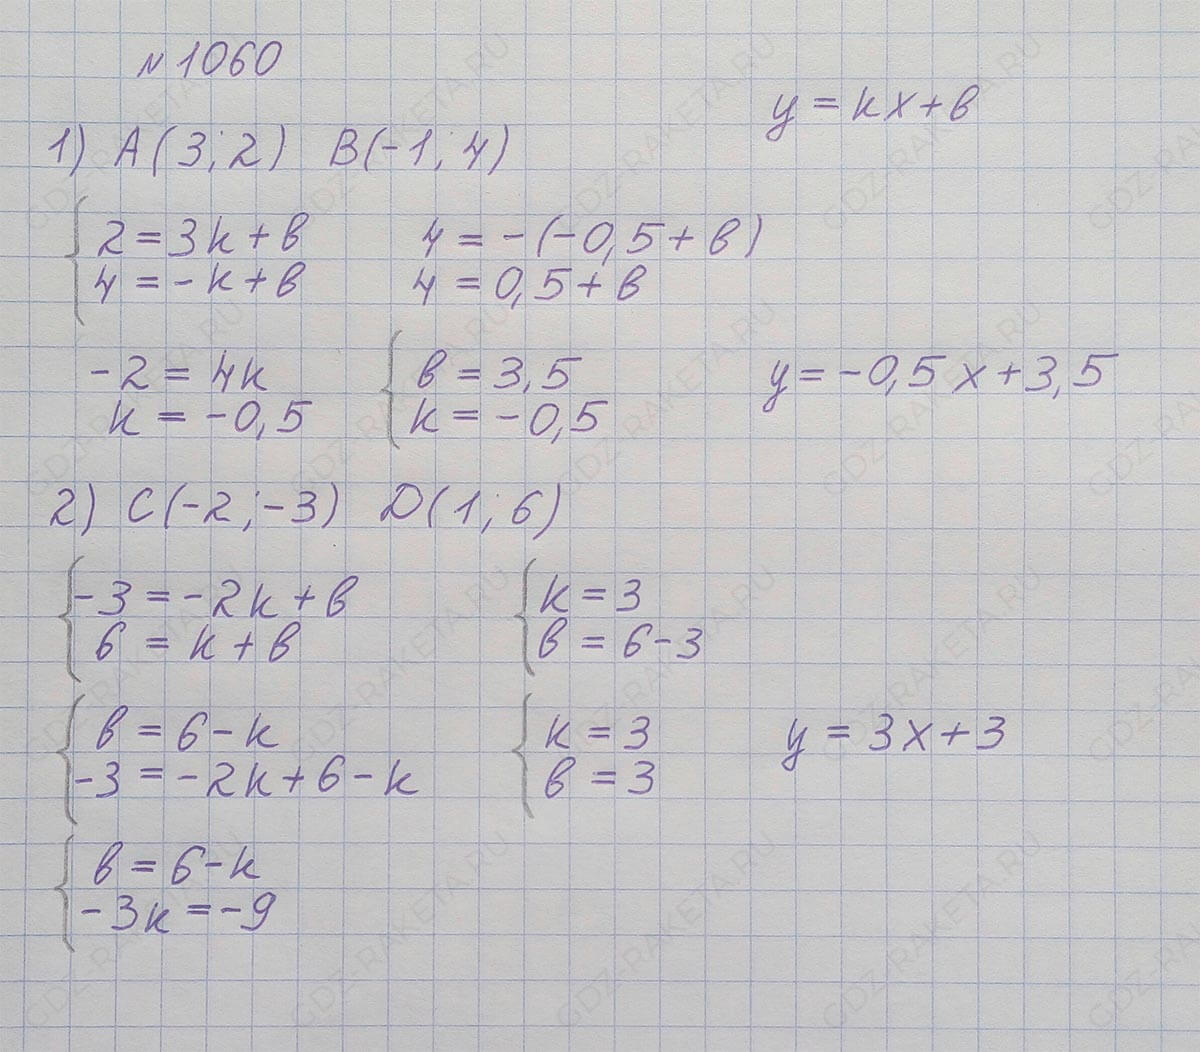 №1060
y = kx + в
1) A(3; 2) B(-1; 4)
2 = 3k + в
4 = -k + в
4 = -(-0,5 + в)
4 = 0,5 + в
-2 = 4k
k = -0,5
в = 3,5
k = -0,5
y = -0,5x + 3,5
2) C(-2; -3) D(1; 6)
-3 = -2k + в
6 = k + в
k = 3
в = 6 - 3
в = 6 - k
-3 = -2k + 6 - k
k = 3
в = 3
y = 3x + 3
в = 6 - k
-3k = -9
GDZ-RAKETA.RU